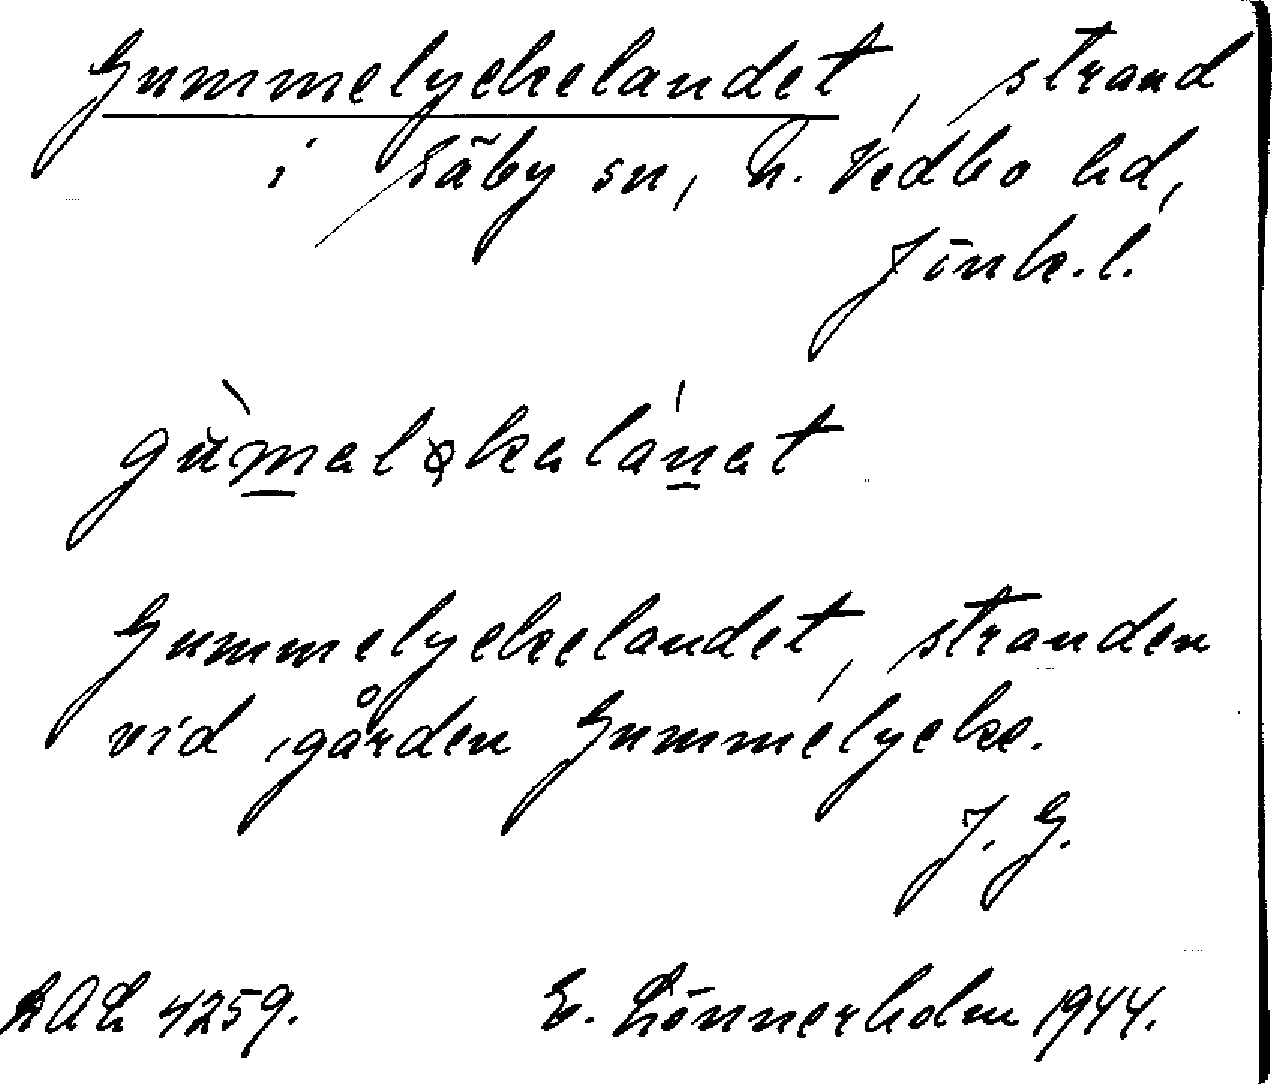 Gummelyckelandet, strand
i Säby sn, N. Vedbo hd,
Jönk.l.
Gummelyckelandet, stranden
vid gården Gummelycke.
J. G.
4259. E. Lönnerholm 1944.